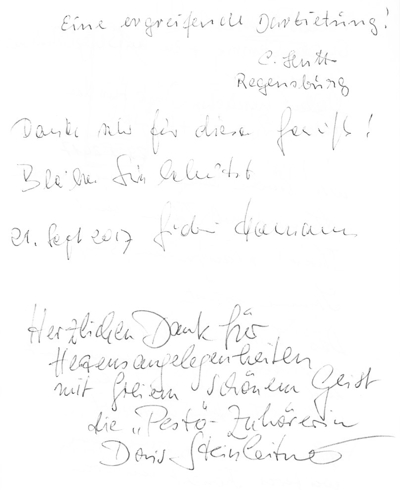 Eine ergreifende Darbietung!
C. Hutt
Regensburg
Danke sehr für diesen Genuß!
Bleiben Sie behütet
21. Sept 2017
Herzlichen Dank für
Herzensangelegenheiten
mit freiem schönem Geist
die "Pestö-Zuhörerin
Doris Steinleitner